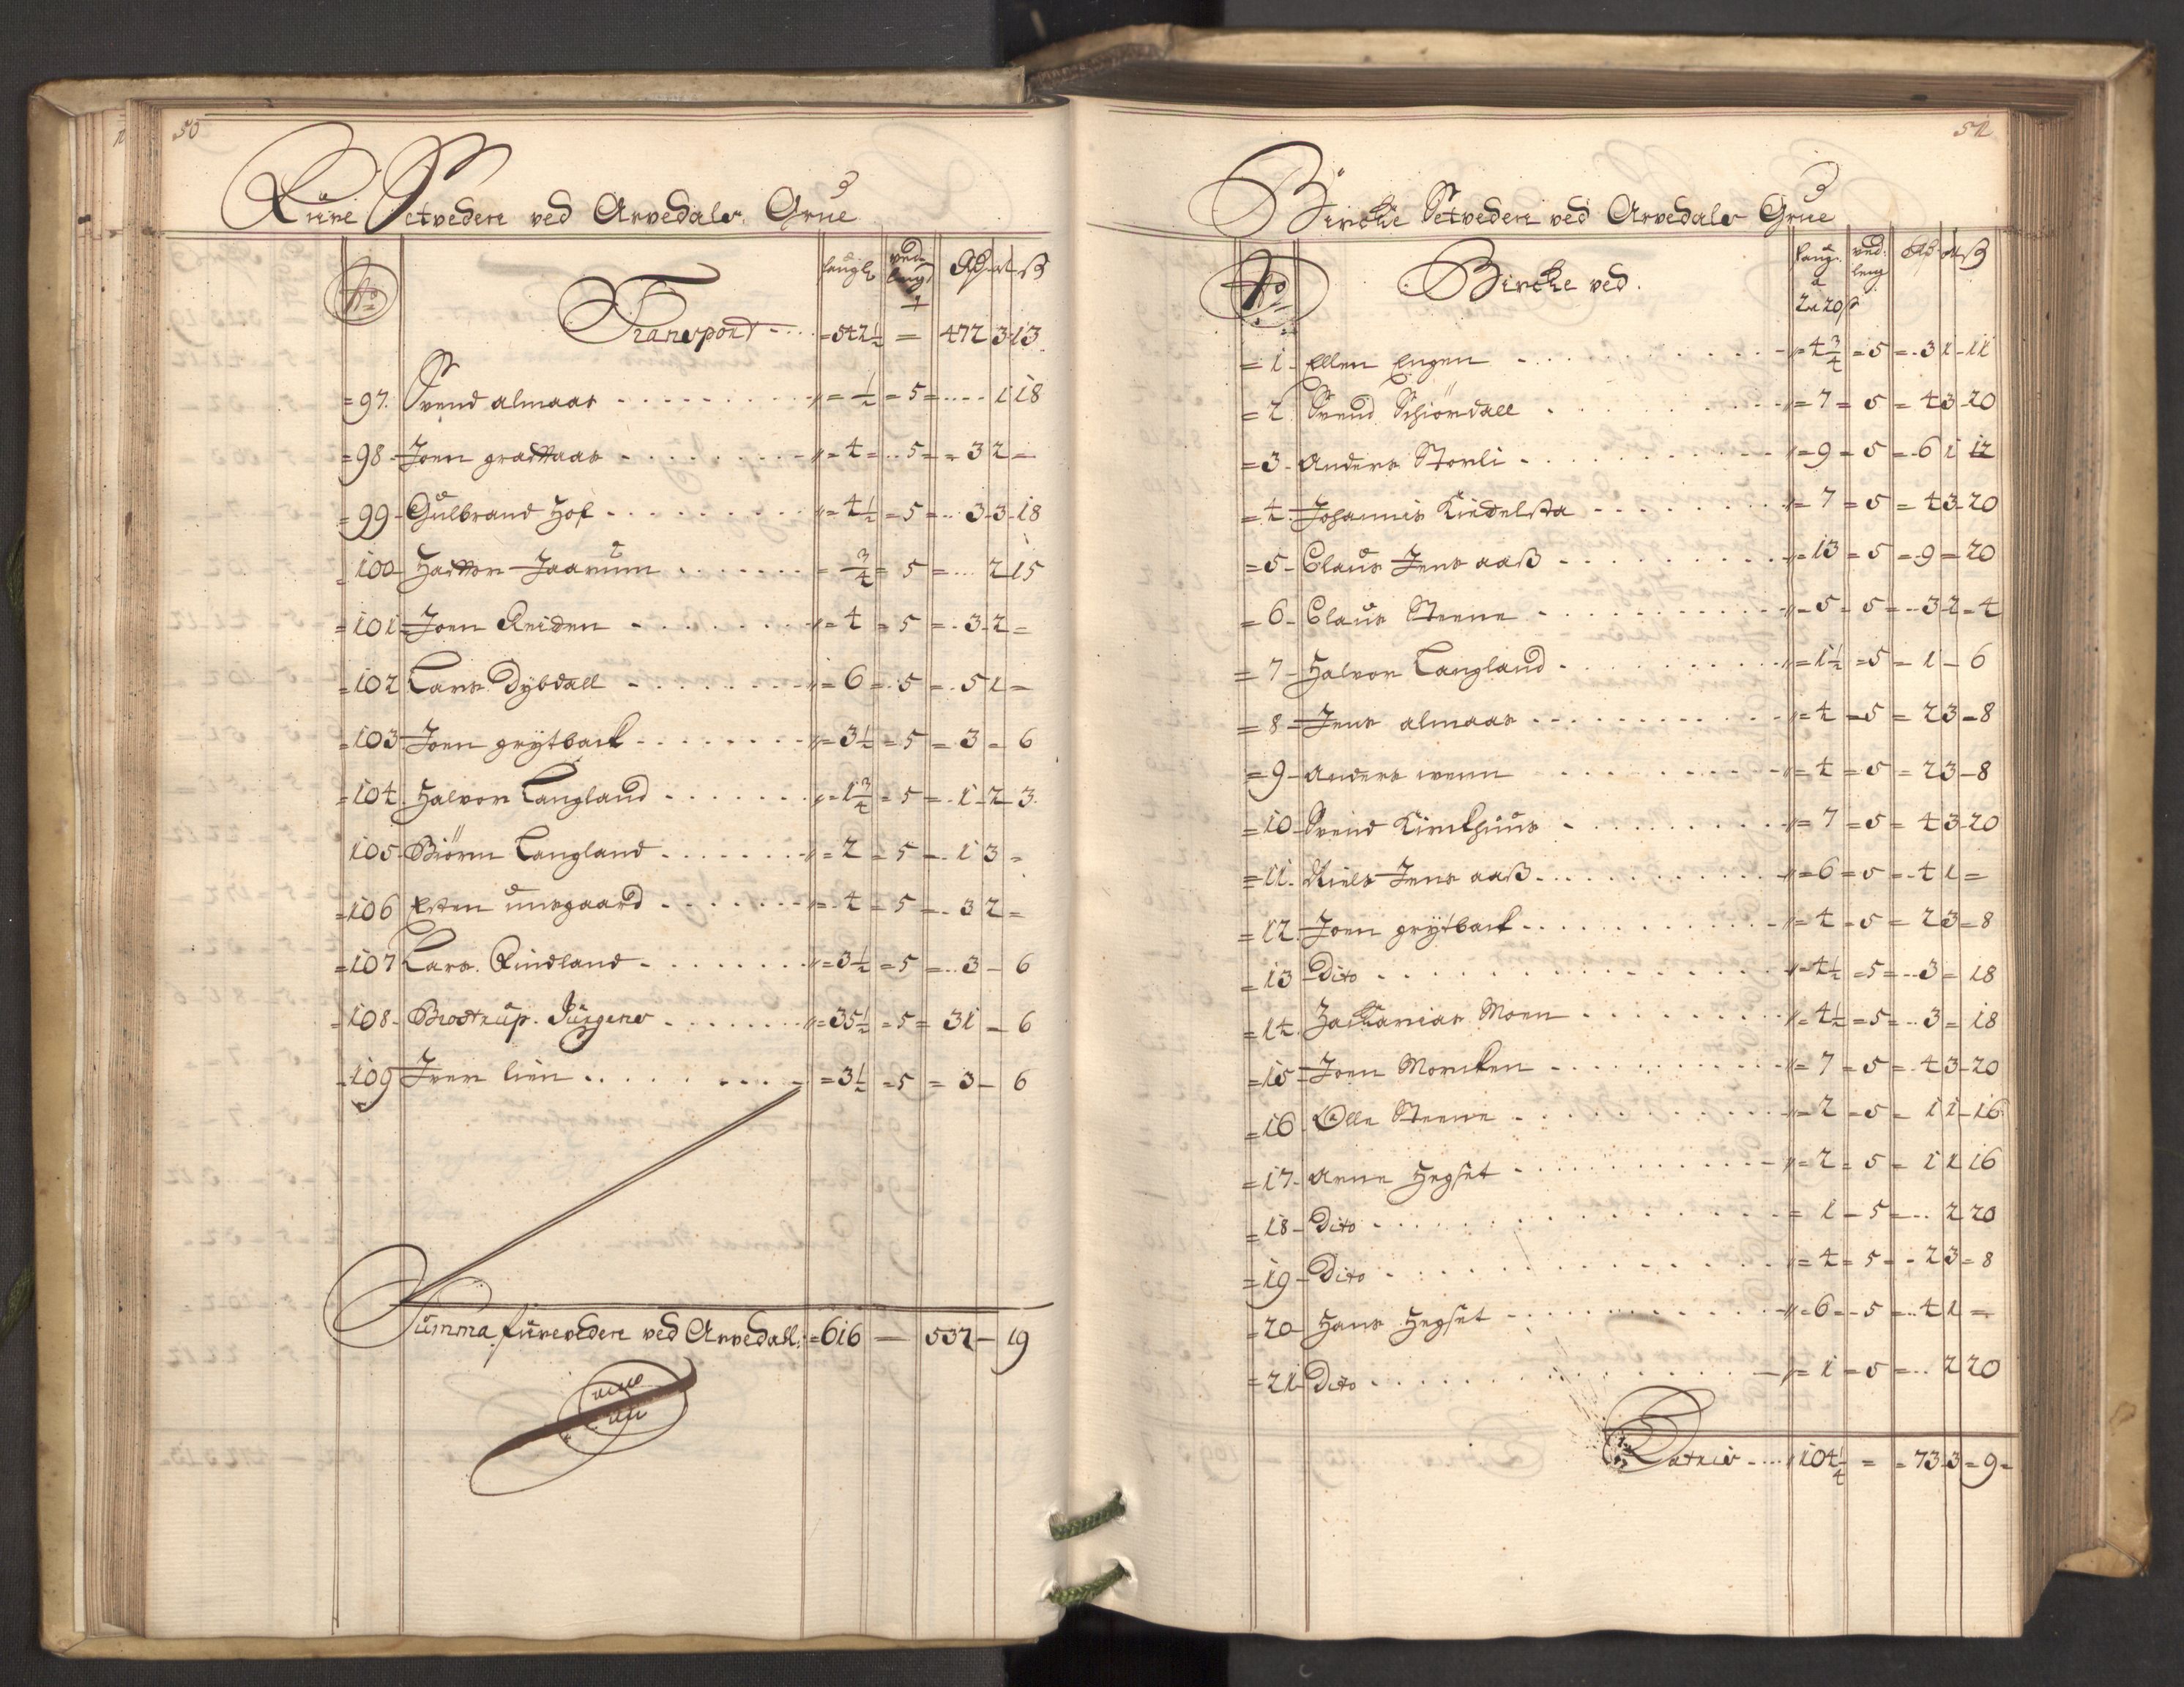 50
Füre Setvedere ved Arvedals Grue
No
faugl. ved leng Rd M ß
Transport - - - = 542½ = 472 3 13
= 97. Svend almaas - - - = ½ = 5 = - - 1 18
= 98 - Joen graattaas - - - = 4 = 5 = 3 2 =
= 99 - Gulbrand Hof - - - = 4½ = 5 = 3 - 3 - 18
= 100 Halvor Jaarum - - - = ¾ = 5 = - - 2 15
= 101 Joen Reiden - - - = 4 = 5 = 3 - 2 =
= 102 Lars Dybdall - - - = 6 = 5 = 5 1 =
= 103 Joen grytback - - - = 3½ = 5 = 3 - 6
= 104. Halvor Langland - - - = 1¾ = 5 = 1 - 2 3
105 - Biörn Langland - - - = 2 = 5 = 1 3 =
= 106 Esten unsgaard - - - = 4 = 5 = 3 2 =
= 107 Lars Rindland - - - = 3½ = 5 = 3 - 6
= 108 - Brostrup Jürgens - - - = 35½ = 5 = 31 - 6
- 109 Iver lien - - - = 3½ = 5 = 3 - 6
Summa furevedere ved Arvedall: = 616 — 537 - 19
51
Bircke Setvedere ved Arvedals Grue
No Bircke ved. faug. a 2 a 20 ß ved leng Rd M ß
= 1 - Ellen Engen - - - = 4¾ = 5 = 3 1 - 11
= 2. Svend Schiördall - - - = 7 = 5 = 4 3 - 20
= 3 - Anders Storli - - - = 9 = 5 = 6 1 12
= 4. Johannis Kiedelsta - - - = 7 = 5 = 4 3 - 20
= 5 - Claus Jens aaß - - - = 13 = 5 = 9 = 20
= 6 - Claus Steene - - - = 5 = 5 = 3 2 - 4
= 7 - Halvor Langland - - - = 1½ = 5 = 1 - 6
= 8 - Jens almaas - - - = 4 = 5 = 2 3 - 8
= 9 - Anders wenn - - - = 4 = 5 = 2 3 - 8
= 10 - Svend Kirckhuus - - - = 7 = 5 = 4 3 - 20
= 11. Niels Jens aaß - - - = 6 = 5 = 4 1 =
= 12. Joen grytback - - - = 4 = 5 = 2 3 = 8
= 13 Dito - - - = 4½ = 5 = 3 = 18
= 14. Zackarias Moen - - - = 4½ = 5 = 3 = 18
= 15 - Joen Morcken - - - = 7 = 5 = 4 3 - 20
= 16 - Olle Steene - - - = 2 = 5 = 1 1 - 16
= 17 - Arne Hegset - - - = 2 = 5 = 1 1 16
= 18 - Dito - - - = 1 - 5 = - - 2 20
= 19 - Dito - - - = 4 = 5 = 2 3 = 8
= 20 - Hans Hegset - - - = 6 = 5 = 4 1 =
= 21 - Dito - - - = 1 = 5 = - - 2 20
Latris - - - 104¼ = = 73 3 = 9 =